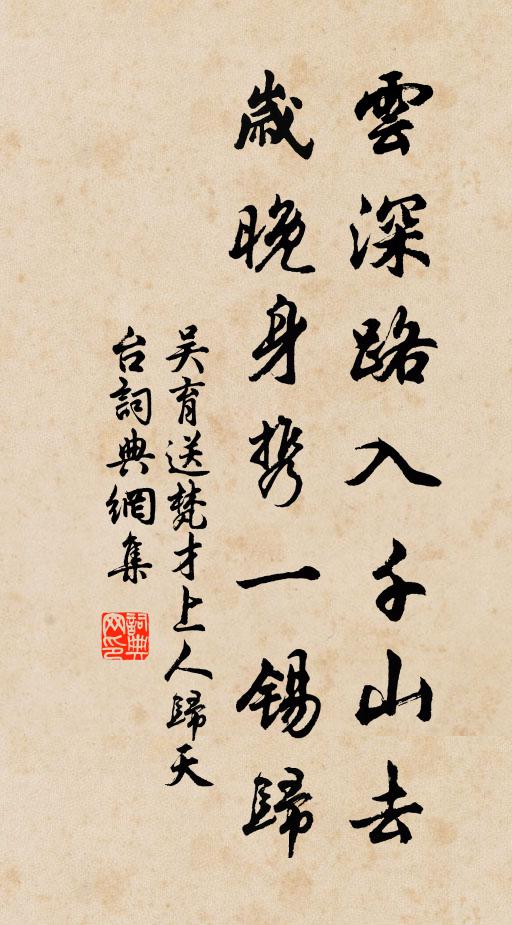 雲深路入千山去
歲晚身攜一錫歸
吳育送梵才上人歸天
台詞典網集
詞典网印